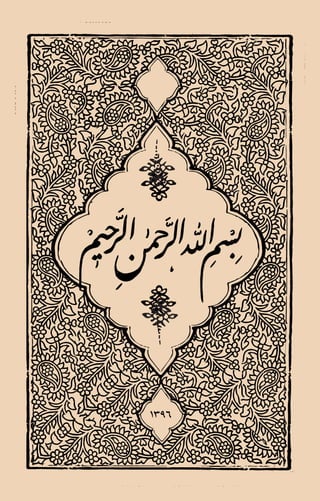 بِسْمِ اللهِ الرَّحْمٰنِ الرَّحِیْمِ
۱۳۹۶